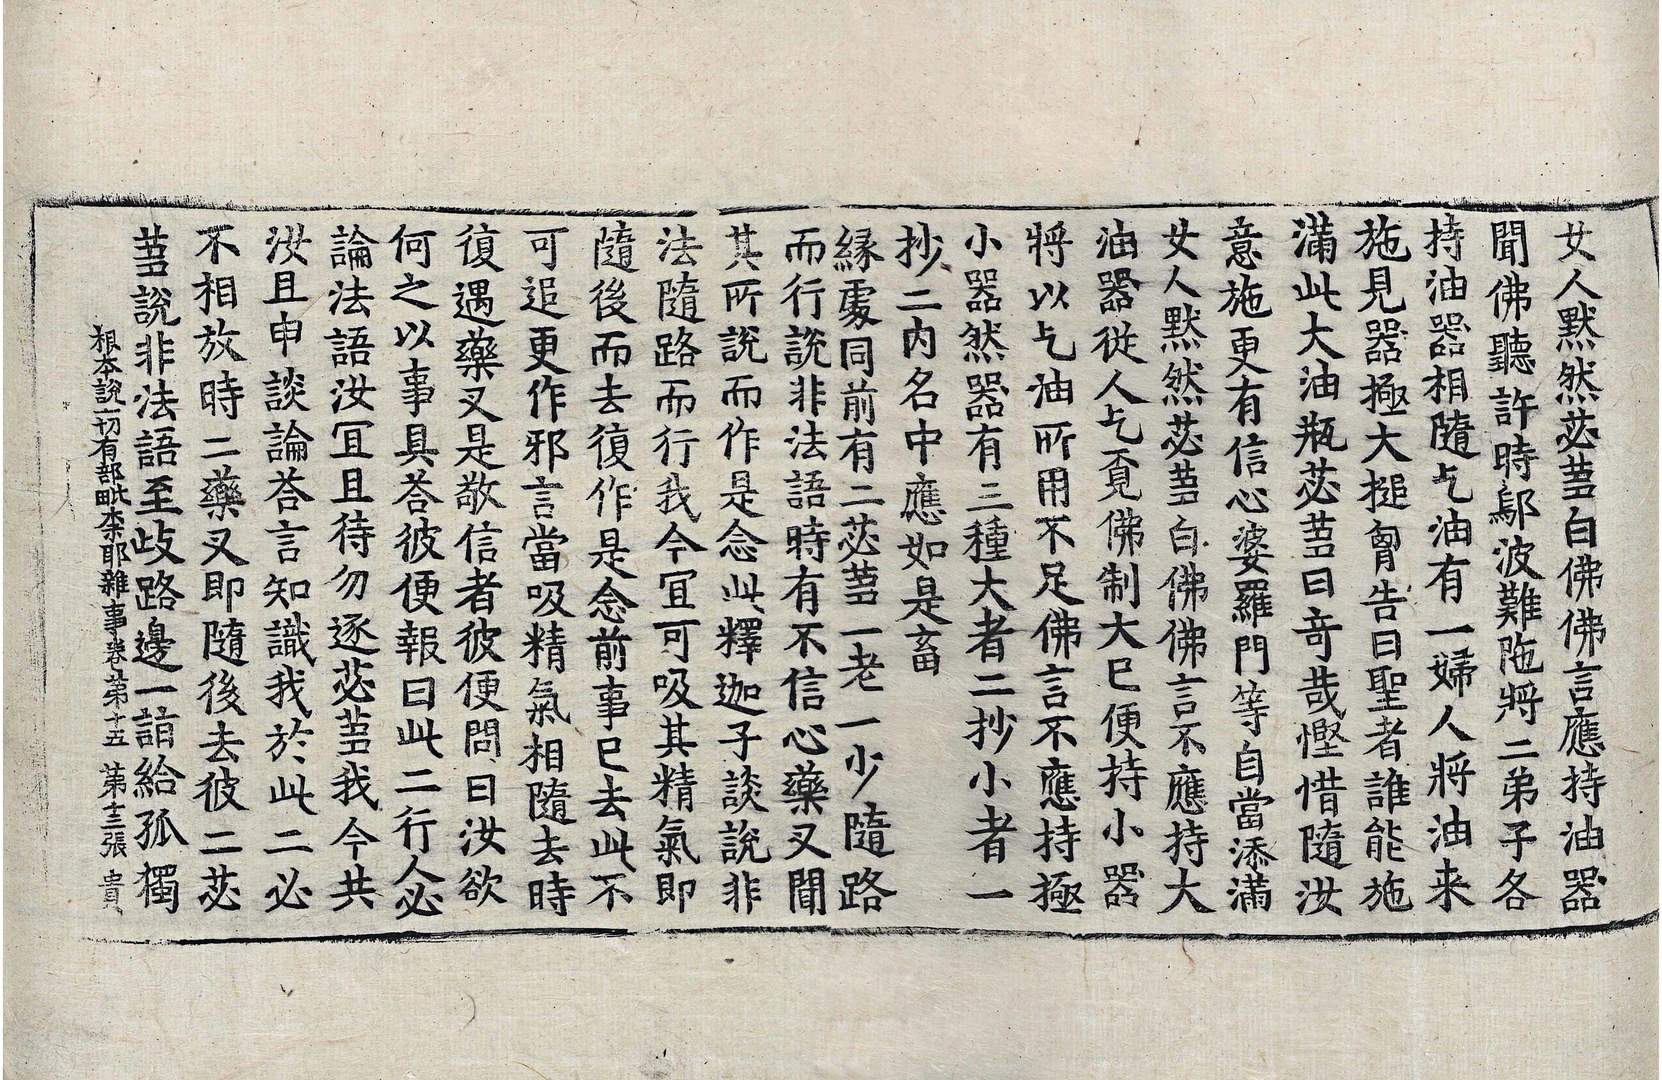 女人默然苾蒭白佛佛言應持油器
聞佛聽許時鄔波難陁將二弟子各
持油器相隨乞油有一婦人將油来
施見器極大搥胷告曰聖者誰能施
滿此大油瓶苾蒭曰奇哉慳惜隨汝
意施更有信心婆羅門等自當添滿
女人默然苾蒭白佛佛言不應持大
油器從人乞覔佛制大已便持小器
將以乞油所用不足佛言不應持極
小器然器有三種大者二抄小者一
抄二内名中應如是畜
緣處同前有二苾蒭一老一少隨路
而行說非法語時有不信心藥叉聞
其所說而作是念此釋迦子談說非
法隨路而行我今冝可吸其精氣即
隨後而去復作是念前事已去此不
可追更作邪言當吸精氣相隨去時
復遇藥叉是敬信者彼便問曰汝欲
何之以事具荅彼便報曰此二行人必
論法語汝冝且待勿逐苾蒭我今共
汝且申談論荅言知識我於此二必
不相放時二藥叉即隨後去彼二苾
蒭說非法語至歧路邊一詣給孤獨
根本說一切有部毗奈耶雜事卷苐十五 苐十三張 貴